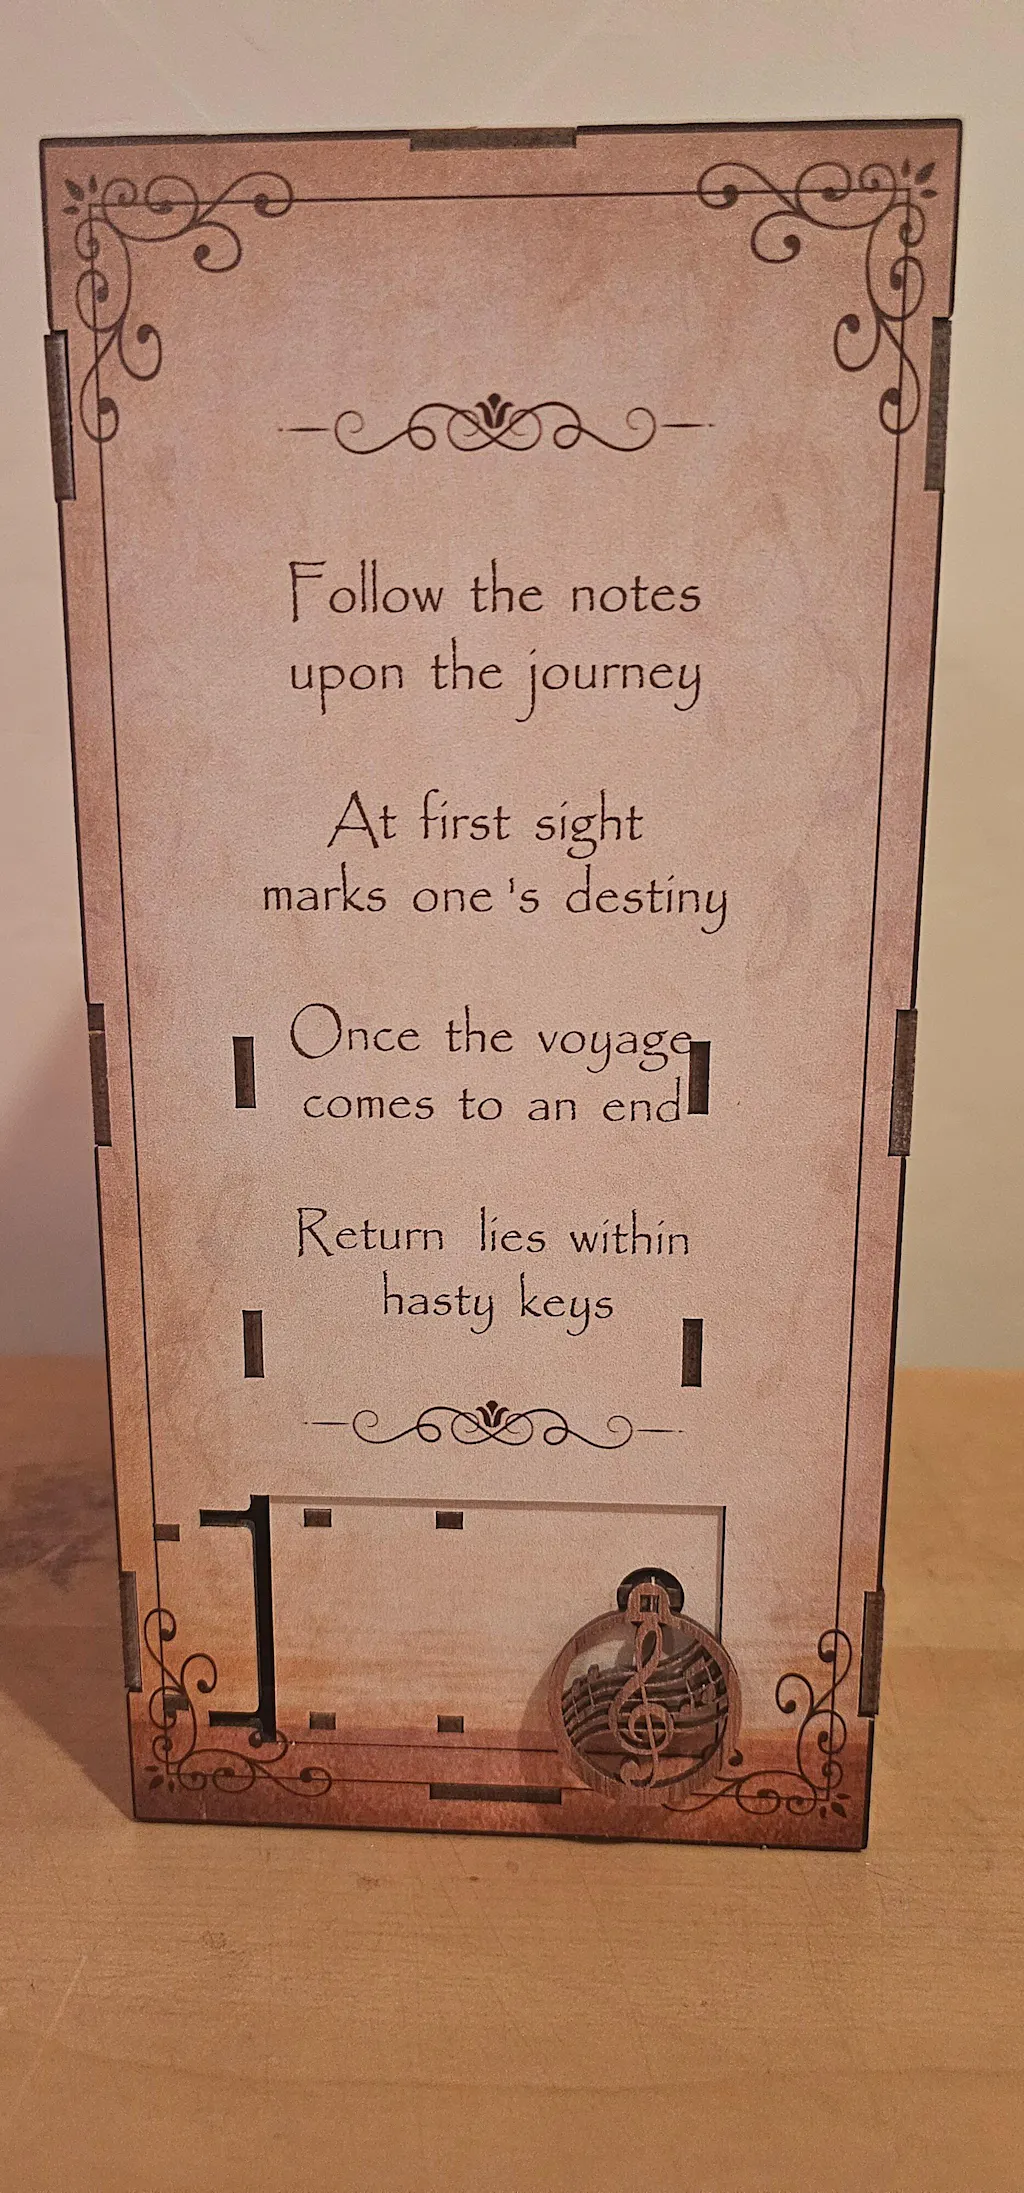 Follow the notes
upon the journey
At first sight
marks one's destiny
Once the voyage
comes to an end
Return lies within
hasty keys